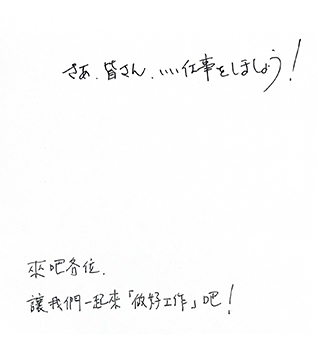 さあ、皆さん、いい仕事をしましょう!
來吧各位,
讓我們一起來「做好工作」吧!